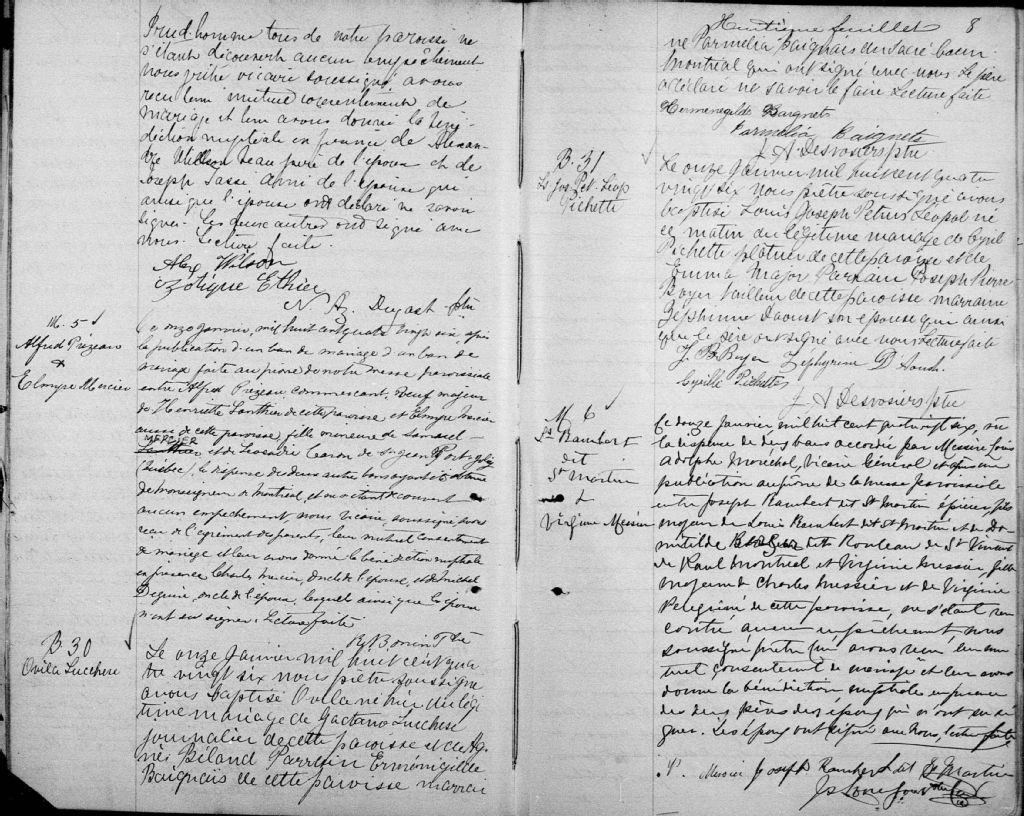 Prud'homme tous de notre paroisse ne
s'étant découvert aucun empêchement
nous prêtre vicaire soussigné avons
reçu leur mutuel consentement de
mariage et leur avons donné la béné
diction nuptiale en présence de Alexan
dre Wilson beau père de l'époux et de
Joseph Tassé ami de l'épouse qui
ainsi que l'épouse ont déclaré ne savoir
signer. Les deux autres ont signé avec
nous. Lecture faite.
Alex Wilson
Zotique Ethier
N. Az. Dugast ptre
M. 5
Alfred Prezeau
&
Elmyre Mercier
Ce onze janvier, mil huit cent quatre vingt six, après
la publication d'un ban de mariage
faite au prône de notre messe paroissiale
entre Alfred Prezeau, commerçant, veuf majeur
de Henriette Lanthier de cette paroisse, et Elmyre Mercier
aussi de cette paroisse, fille mineure de Samuel
MERCIER
et de Léocadie Caron de St Jean Port-Joly
(Québec), la dispense de deux autres bans ayant été obtenue
de Monseigneur de Montréal, et ne s'étant découvert
aucun empêchement, nous vicaire, soussigné, avons
reçu de l'agrément des parents, leur mutuel consentement
de mariage et leur avons donné la bénédiction nuptiale
en présence Charles Mercier, oncle de l'épouse, et de Michel
Deguire, oncle de l'époux, lesquels ainsi que les époux
n'ont su signer. Lecture faite
B. 30
Ovila Lucchesi
Le onze Janvier mil huit cent qua
tre vingt six nous prêtre soussigné
avons baptisé Ovila né hier du légi
time mariage de Gaetano Lucchesi
journalier de cette paroisse et de Ag
nès Béland Parrain Ermenigilde
Baignais de cette paroisse marrai
Huitième feuillet 8
ne Parmélia Baignais du Sacré Coeur
Montréal qui ont signé avec nous. Le père
a déclaré ne savoir le faire Lecture faite
Hermenegilde Baignets
Parmélia Baignets
J A Desrosiers ptre
B. 31
Ls Jos Pet. Léop
Pichette
Le onze Janvier mil huit cent quatre
vingt six nous prêtre soussigné avons
baptisé Louis Joseph Petrus Léopol né
ce matin du légitime mariage de Cyril
Pichette plâtrier de cette paroisse et de
Emma Major Parrain Joseph Pierre
Boyer tailleur de cette paroisse marraine
Zéphirine Daoust son épouse qui ainsi
que le père ont signé avec nous Lecture faite
J. B. Boyer Zéphyrine D'Aoust
Cyrille Pichette
J A Desrosiers ptre
M 6
Js Rambert
dit
St Martin
&
Virginie Messier
Ce douze janvier mil huit cent quatre vingt six, vu
la dispense de deux bans accordée par Messire Louis
Adolphe Maréchal, Vicaire Général et
publication au prône de la messe paroissiale
entre Joseph Rambert dit St Martin épicier, fils
majeur de Louis Rambert dit St Martin et de Do
mitilde dit Rouleau de St Vincent
de Paul Montréal et Virginie Messier fille
majeure de Charles Messier et de Virginie
de cette paroisse, ne s'étant ren
contré aucun empêchement, nous
soussigné prêtre avons reçu leur mu
tuel consentement de mariage et leur avons
donné la bénédiction nuptiale en présence
des deux pères des époux qui n'ont su si
gner. Les époux ont signé avec nous, lecture faite
Messier Joseph Rambert dit St Martin